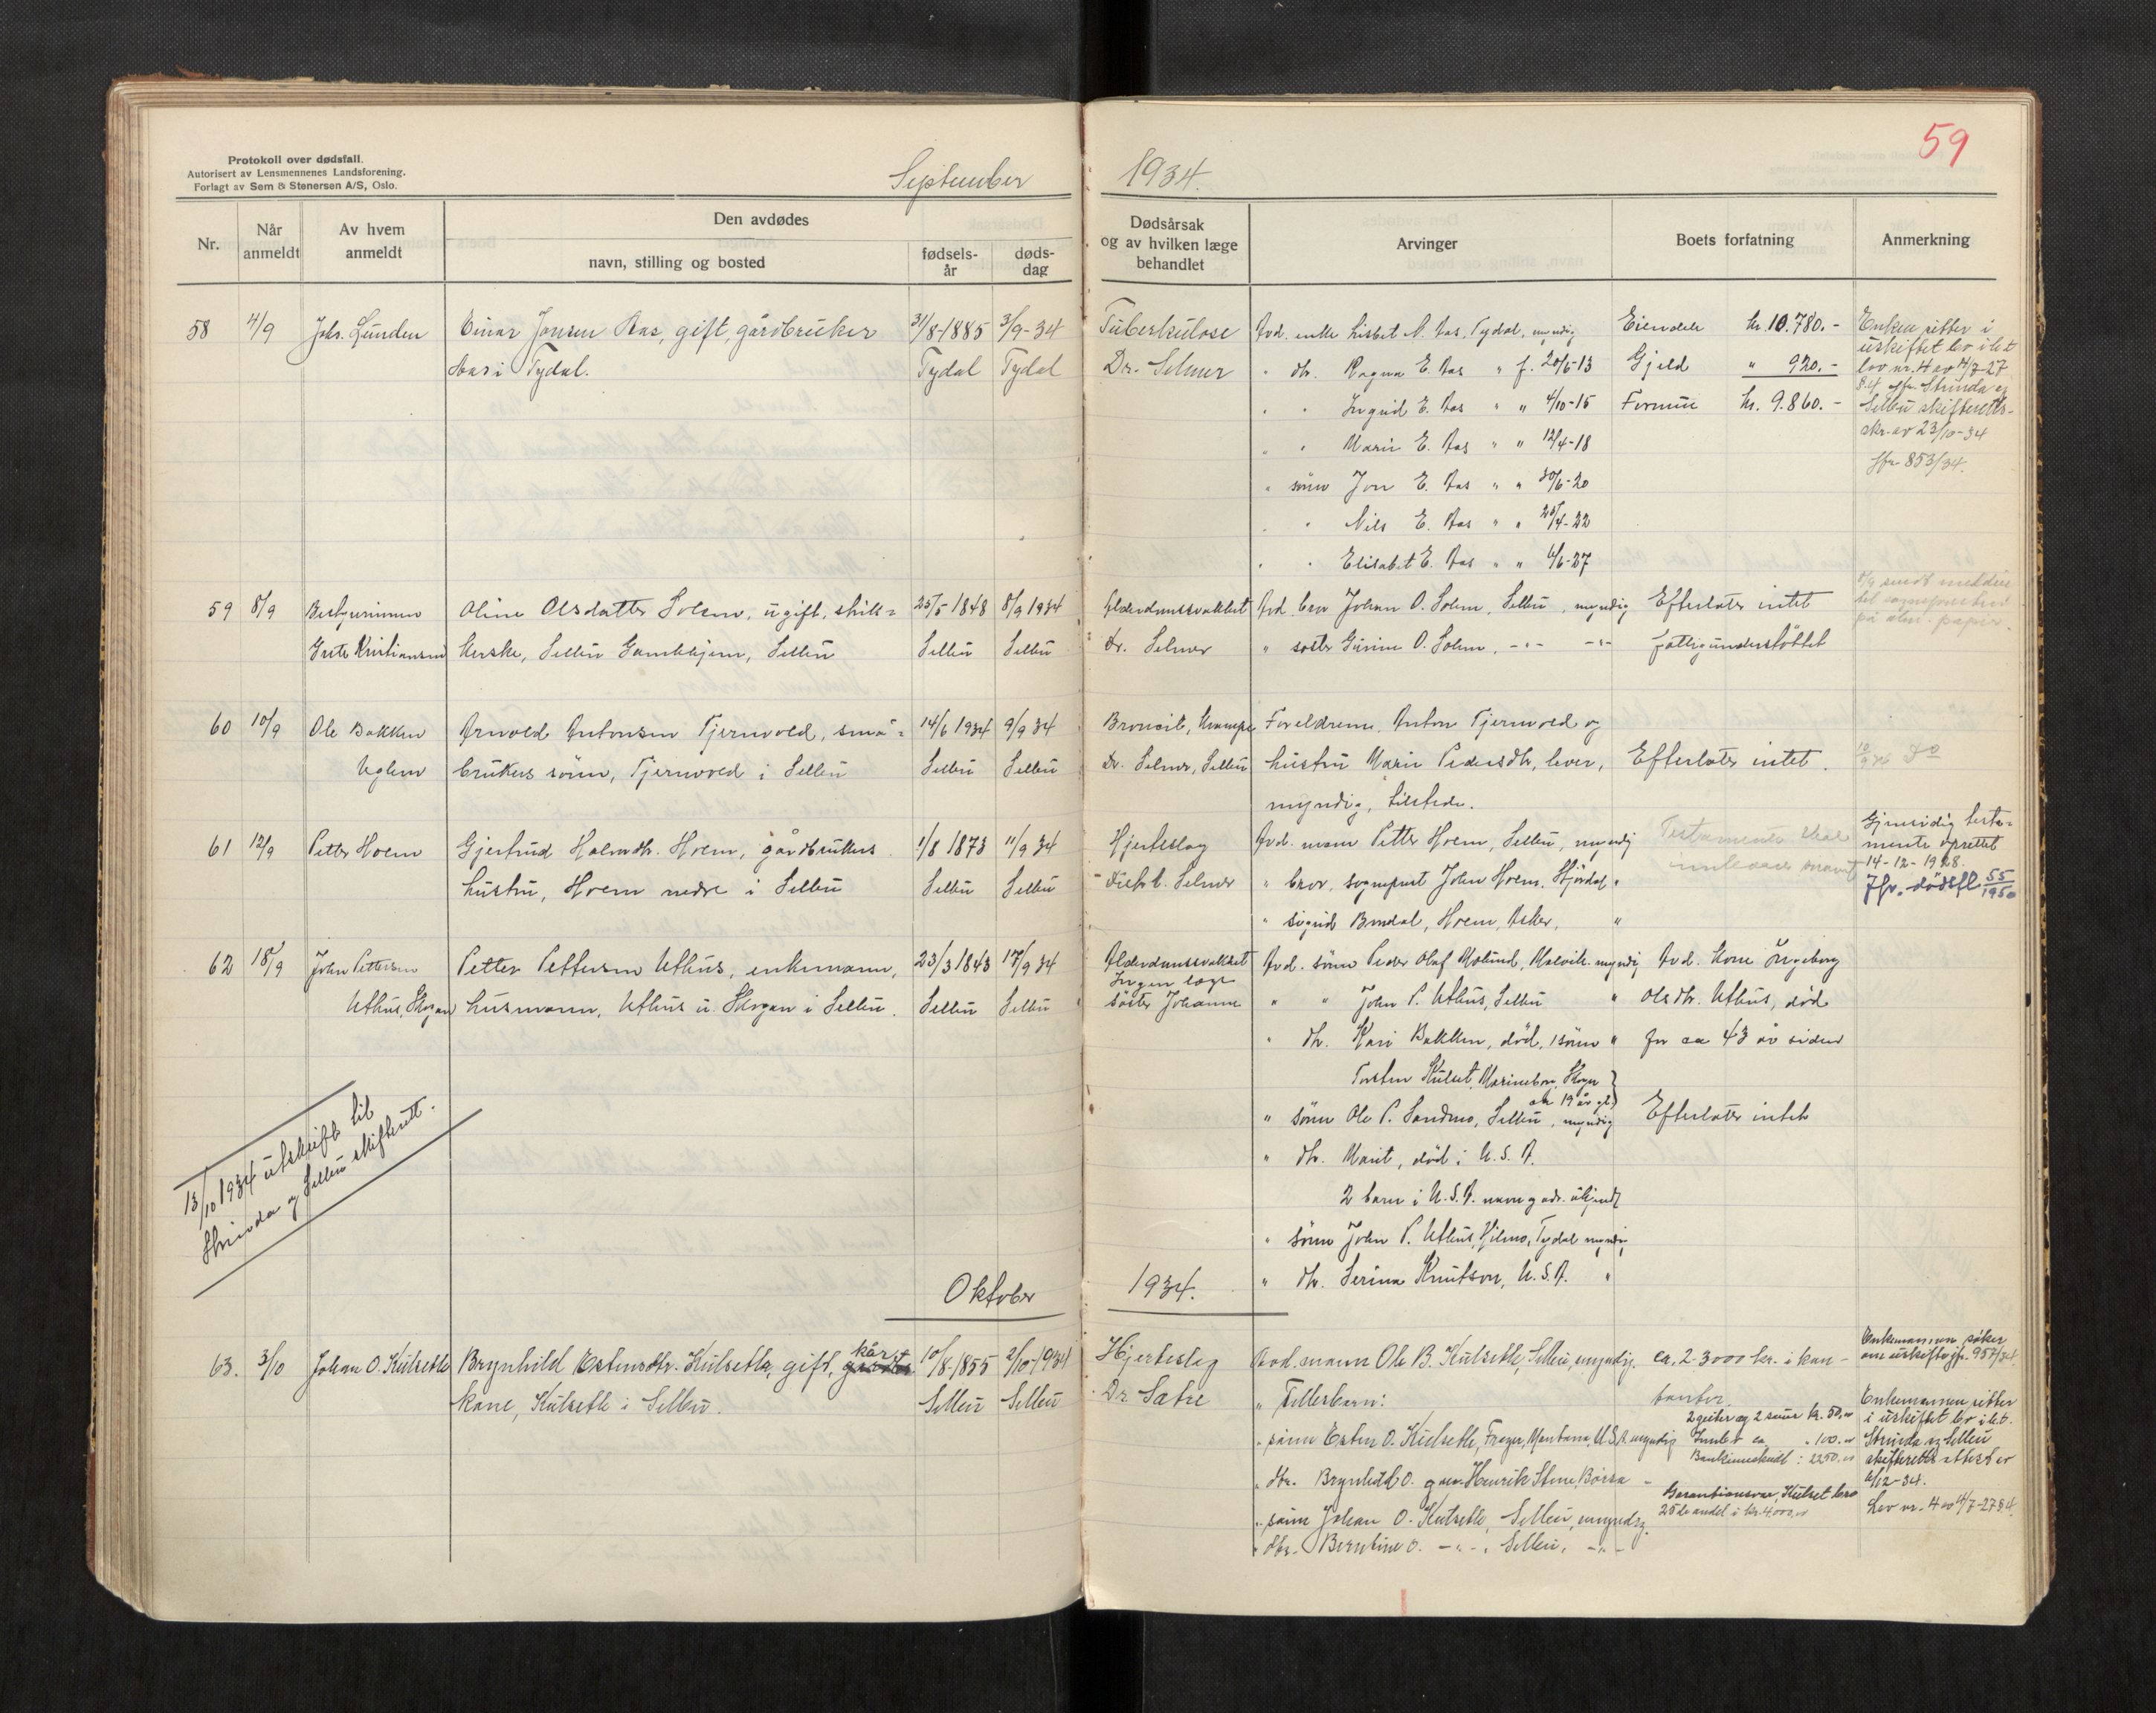 Protokoll over dødsfall.
Autorisert av Lensmennenes Landsforening.
Forlagt av Sem & Stenersen A/S, Oslo.
September 1934.
59
Nr.
Når anmeldt
Av hvem anmeldt
Den avdødes
navn, stilling og bosted
fødsels-år
døds-dag
Dødsårsak og av hvilken læge behandlet
Arvinger
Boets forfatning
Anmerkning
58 4/9 Johs. Lunden
Einar Jonsen Aas, gift, gårdbruker
Aas i Tydal.
31/8-1885 3/9-34
Tydal Tydal
Tuberkulose
Dr. Selmer
Avd. enke Lisbet N. Aas, Tydal, myndig
" dtr. Ragna E. Aas " f. 20/6-13
" " Ingrid E. Aas " " 4/10-15
" " Marie E. Aas " " 12/4-18
" sönn Jon E. Aas " " 30/6-20
" " Nils E. Aas " " 25/4-22
" " Elisabet E. Aas " " 6/6-27
Eiendele kr. 10.780.-
Gjeld " 920.-
Formue kr. 9.860.-
Enken sitter i
uskiftet bo i h.t.
lov nr. 4 av 4/7-27
§ 4 jfr. Strinda og
Selbu skifteretts-
skr. av 23/10-34
Jfr 853/34.
59 8/9 Bestyrerinnen
Grete Kristiansen
Oline Olsdatter Solem, ugift,
Selbu Gamlehjem, Selbu
25/5 1848 8/9 1934
Selbu Selbu
Alderdomssvakhet
Dr. Selmer
Avd. bror Johan O. Solem, Selbu, myndig
" søster Gurine O. Solem, -"- -"-
Efterlater intet
fattigunderstöttet
8/9 sendt
på alm. papir.
60 10/9 Ole Bakken
Uglem
Arnold Antonsen Tjernvold, små-
brukers sönn, Tjernvold i Selbu
14/6 1934 9/9 34
Selbu Selbu
Broncit, Krampe
Dr. Selmer, Selbu
Foreldrene, Anton Tjernvold og
hustru Marie Pedersdtr, lever,
myndig, tilstede.
Efterlater intet.
Do
61 12/9 Petter Hoem
Gjertrud Hoem, gårdbrukers
hustru, Hoem nedre i Selbu
1/8 1873 11/9 34
Selbu Selbu
Hjerteslag
Distr.l. Selmer
Avd. mann Petter Hoem, Selbu, myndig
" bror, sogneprest John Hoem, Stjördal "
" Sigrid Hoem, Asker, "
Testamente skal
Gjensidig testa-
mente oprettet
14-12-1928.
Jfr. dödsfl 55/1950
62 18/9 John Pettersen
Uthus, Skogan
Petter Pettersen Uthus, enkemann,
husmann, Uthus u. Skogan i Selbu.
23/3 1843 17/9 34
Selbu Selbu
Alderdomssvakhet
Ingen læge
søster Johanne
Avd. sönn Peder Olaf Moslund, Malvik, myndig
" " John P. Uthus, Selbu "
" dtr. Kari Bakken, död, 1 sönn "
Torsten Kulset, Skogn
ca 19 år gl.
" sönn Ole P. Sandmo, Selbu, myndig
" dtr. Marit, död i U.S.A.
2 barn i U.S.A. navn og adr. ukjendt
" sönn John P. Uthus, Hilmo, Tydal myndig
" dtr. Serina Knutson, U.S.A. "
Avd. kone Ingeborg
Olsdtr. Uthus, död
for ca 43 år siden
Efterlater intet
13/10 1934 utskrift til
Strinda og Selbu skifterett.
Oktober 1934.
63. 3/10 Johan O. Kulseth
Brynhild Estensdtr. Kulseth, gift, kår-
kone, Kulseth i Selbu.
10/8-1855 2/10-1934
Selbu Selbu
Hjerteslag
Dr. Sætre
Avd. mann Ole B. Kulseth, Selbu, myndig.
" Fellesbarn:
" sönn Esten O. Kulseth, Frazer, Montana, U.S.A. myndig
" dtr. Brynhild O. gm. Henrik Stene, Börsa -
" sönn Johan O. Kulseth, Selbu, myndig.
" dtr. Berntine O. -"-, Selbu, -"-
ca. 2-3000 kr. i kon-
tanter.
2 geiter og 2 sauer kr. 50,00
Innbo ca " 100.00
Bankinnskudt: 2250.00
25de andel i kr. 4,000,00
Enkemannen søker
om uskifte jfr. 957/34.
Enkemannen sitter
i uskiftet bo i h.t.
Strinda og Selbu
skifteretts attest av
6/12-34.
Lov nr. 4 av 4/7-27 § 4.